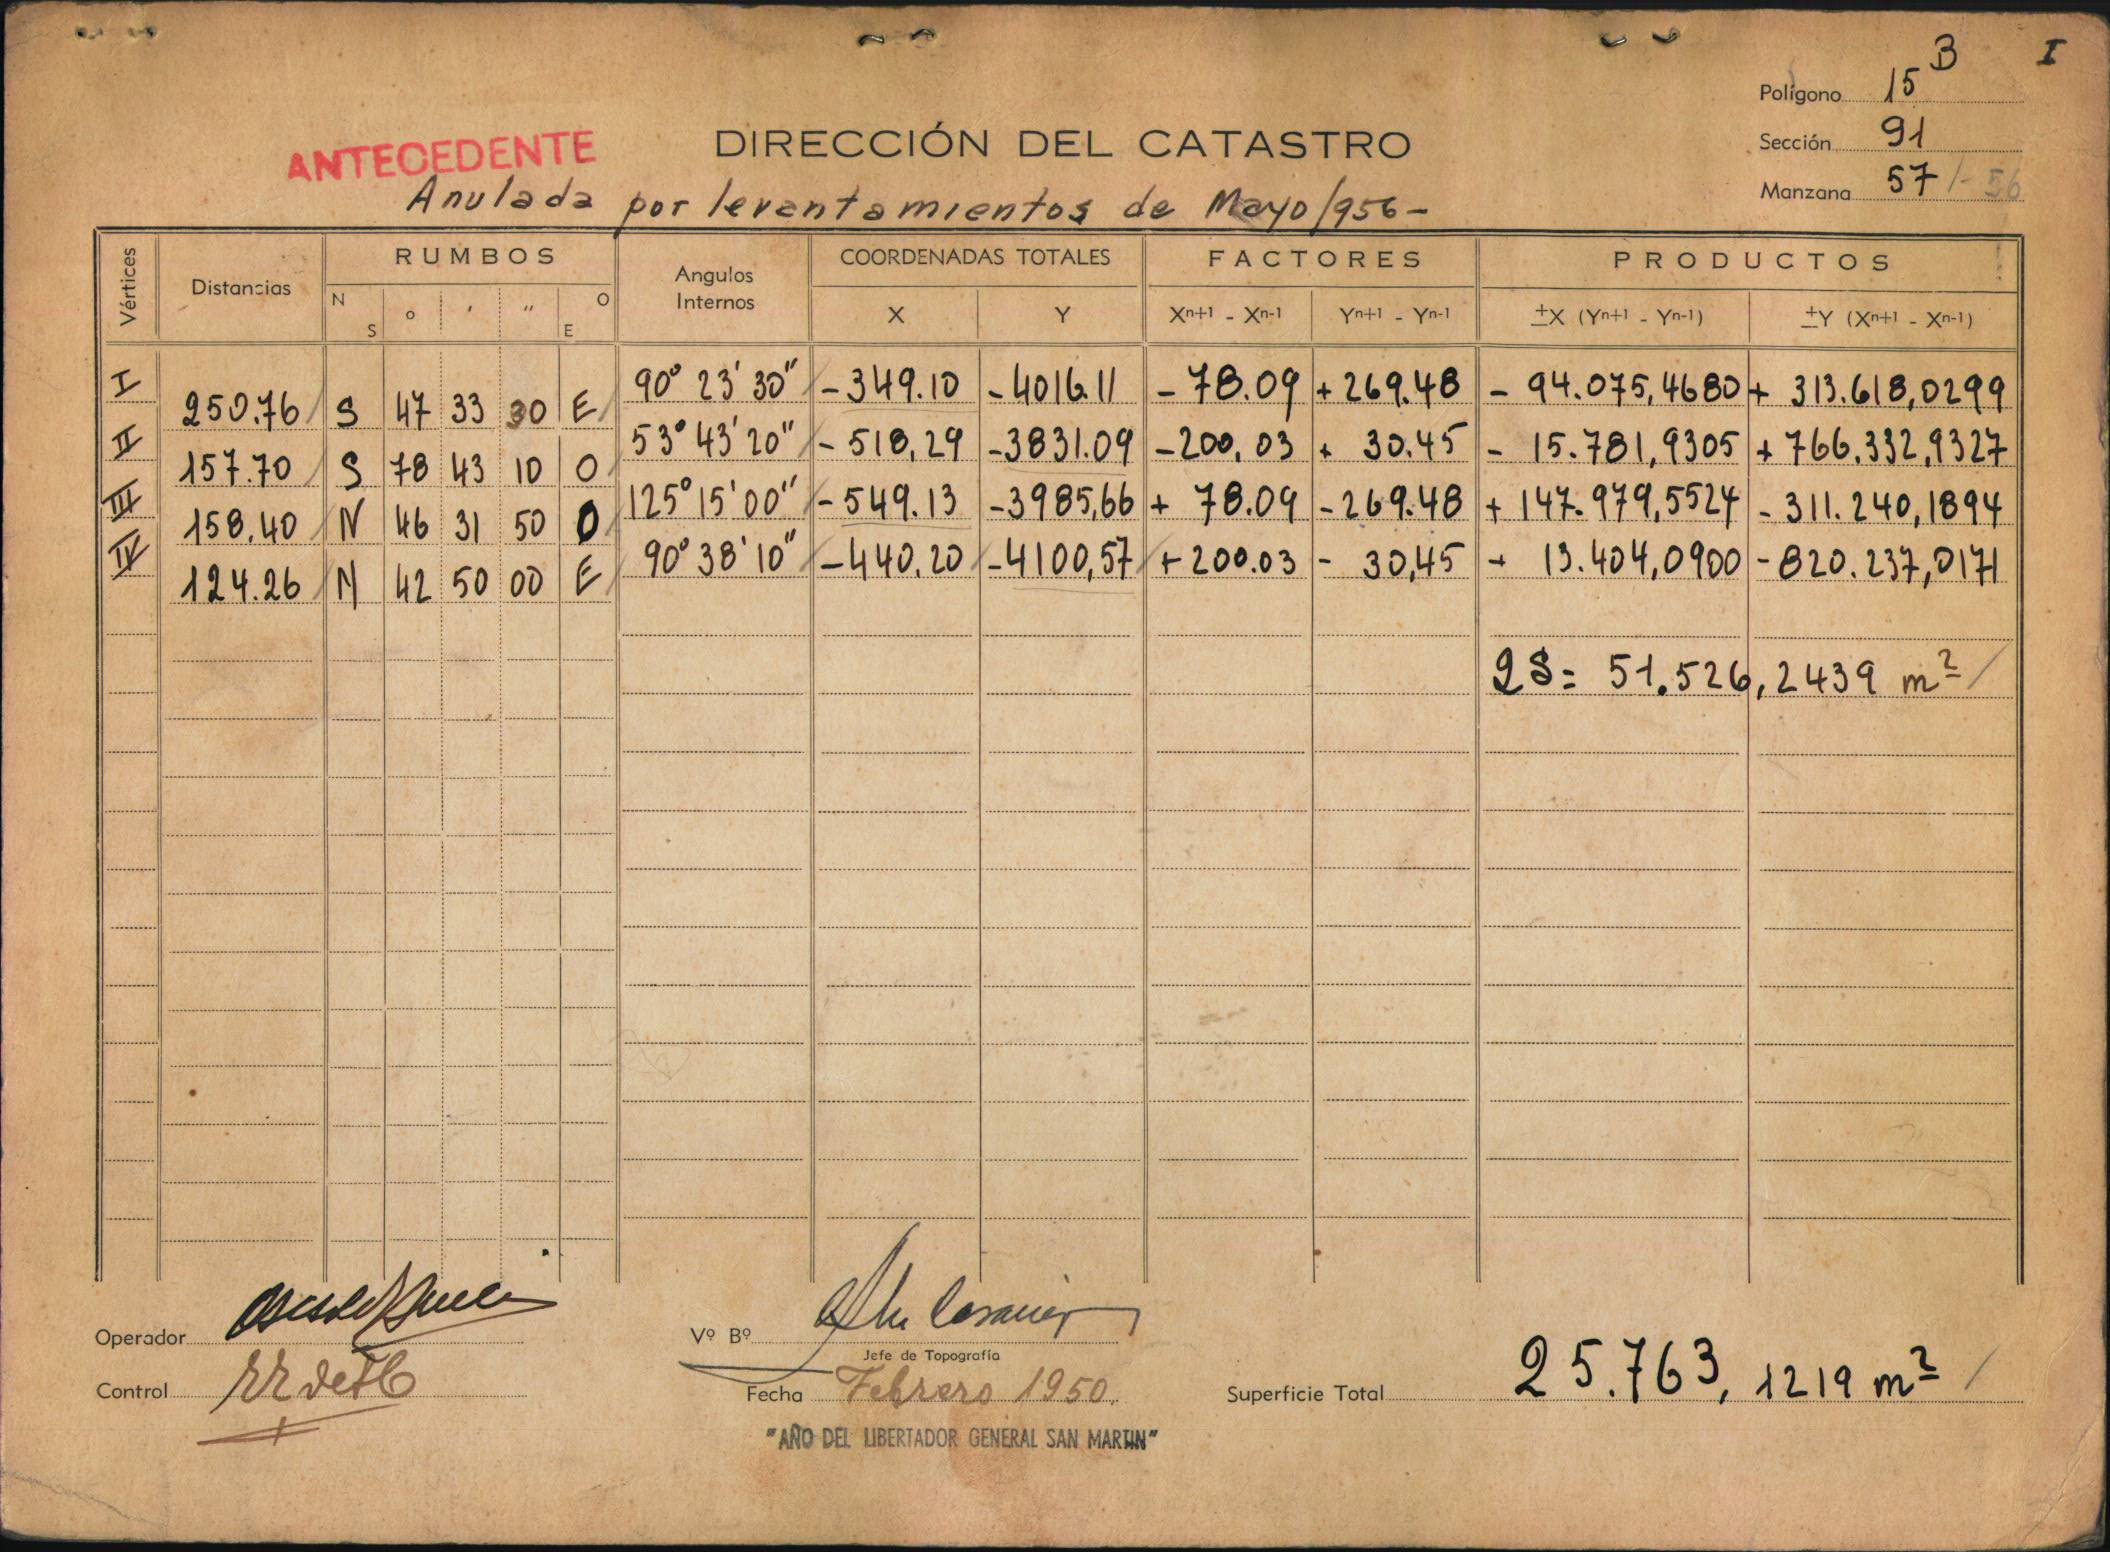 B
I
Polígono 15
ANTECEDENTE
DIRECCIÓN DEL CATASTRO
Sección 91
Anulada por levantamientos de Mayo/956-
Manzana 57 /- 56
Vértices Distancias RUMBOS Angulos Internos COORDENADAS TOTALES FACTORES PRODUCTOS
N S ° ' " O E X Y Xn+1 - Xn-1 Yn+1 - Yn-1 ±X (Yn+1 - Yn-1) ±Y (Xn+1 - Xn-1)
I 90° 23' 30" -349.10 -4016.11 -78.09 +269.48 - 94.075,4680 + 313.618,0299
250.76 S 47 33 30 E
II 53° 43' 20" -518,29 -3831.09 -200,03 + 30.45 - 15.781,9305 + 766.332,9327
157.70 S 78 43 10 O
III 125° 15' 00" -549.13 -3985,66 + 78.09 -269.48 + 147.979,5524 - 311.240,1894
158.40 N 46 31 50 O
IV 90° 38' 10" -440.20 -4100,57 +200.03 - 30,45 + 13.404,0900 -820.237,0171
124.26 N 42 50 00 E
2S= 51.526,2439 m²
Operador
Vº Bº
Jefe de Topografía
Control
Fecha Febrero 1950.
Superficie Total 25.763,1219 m²
"AÑO DEL LIBERTADOR GENERAL SAN MARTIN"